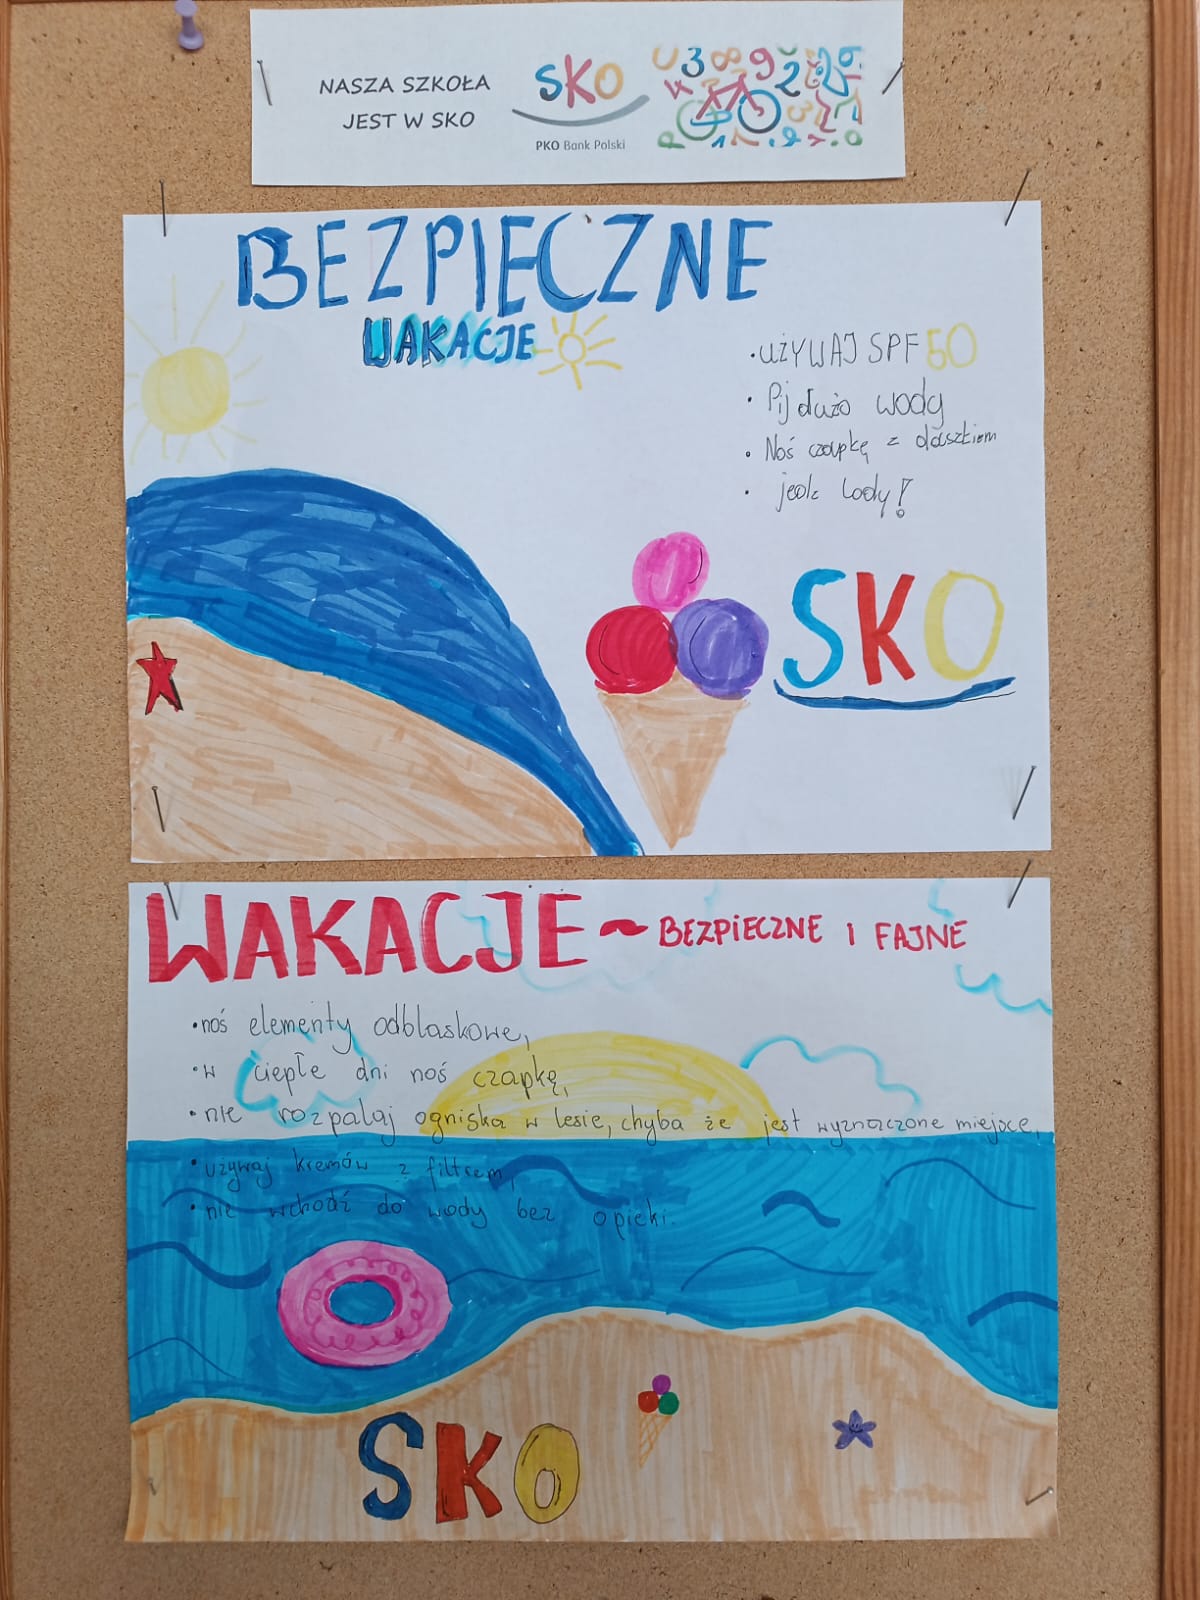 NASZA SZKOŁA
JEST W SKO
SKO
PKO Bank Polski
BEZPIECZNE
WAKACJE
• UŻYWAJ SPF 50
• Pij dużo wody
• Noś czapkę z daszkiem
• jedz lody!
SKO
WAKACJE ~ BEZPIECZNE I FAJNE
• noś elementy odblaskowe,
• w ciepłe dni noś czapkę,
• nie rozpalaj ogniska w lesie, chyba że jest wyznaczone miejsce,
• używaj kremów z filtrem,
• nie wchodź do wody bez opieki.
SKO